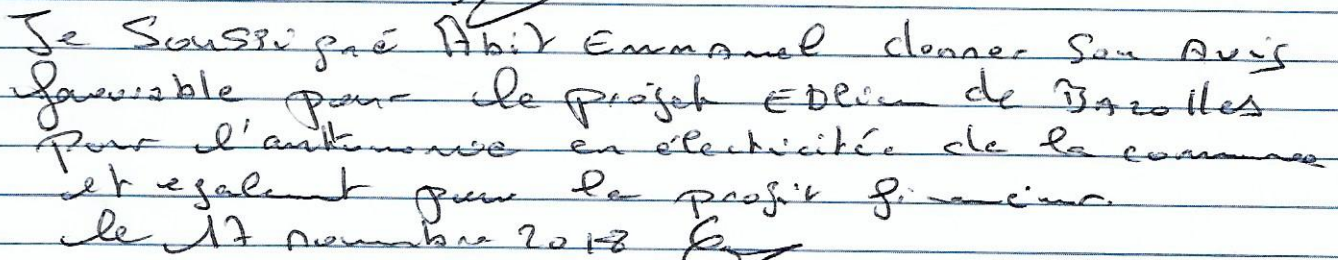 Je Soussigné Abit Emmanuel donner Son Avis
favorable pour le projet EOlien de Bazolles
pour l'autonomie en électricité de la commune
et egalement pour le profit financier
le 17 novembre 2018